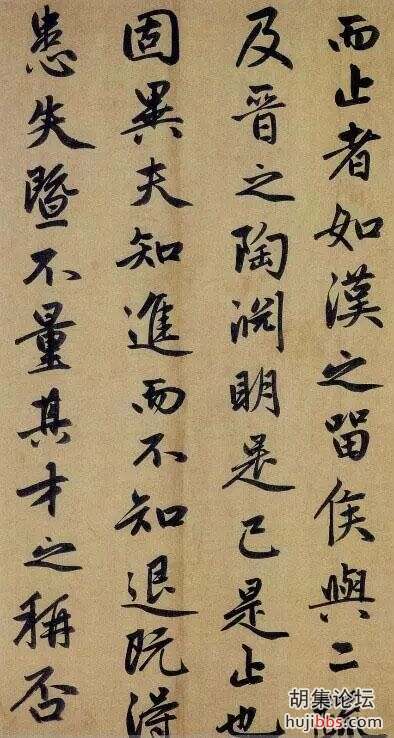 而止者如漢之留侯與二疏
及晉之陶淵明是已是止也
固異夫知進而不知退既得
患失暨不量其才之稱否
胡集论坛
hujibbs.com